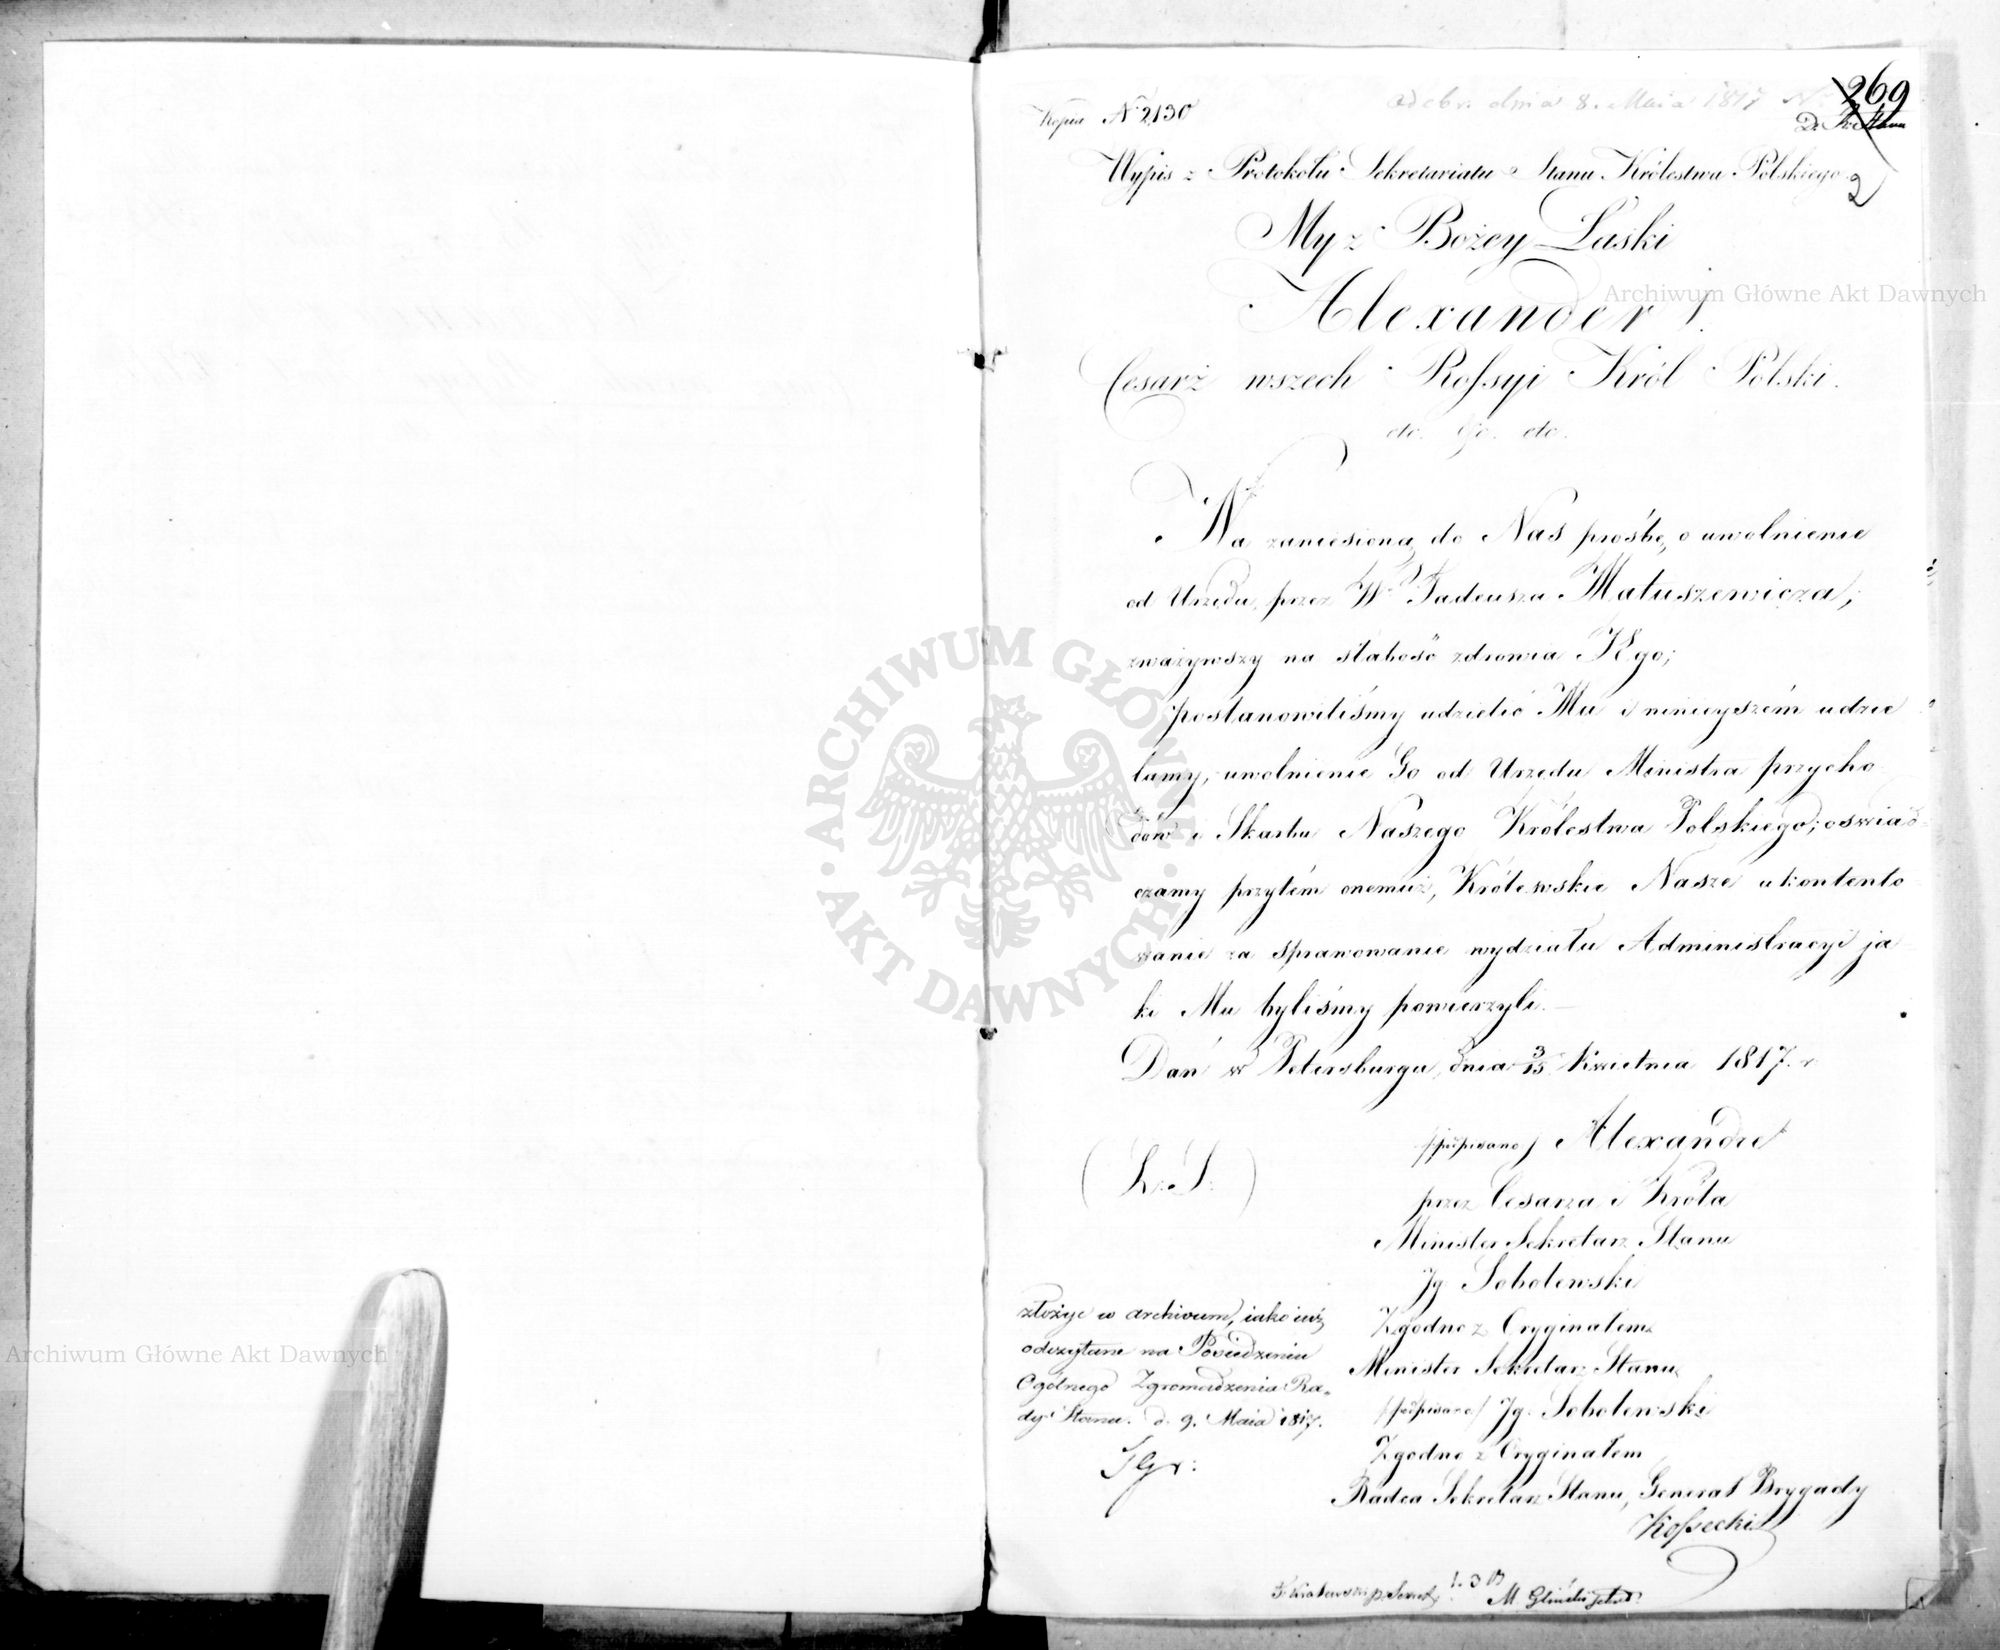 odebr. dnia 8. Maia 1817 N
269
Kopia Nº 2,130
Wypis z Protokołu Sekretariatu Stanu Królestwa Polskiego
2
My z Bożey Łaski
Alexander I.
Cesarz wszech Rossyi Król Polski.
etc. etc. etc.
Na zaniesioną do Nas prośbę, o uwolnienie
od Urzędu, przez Wº Tadeusza Matuszewicza,
zważywszy na słabość zdrowia Jego;
postanowiliśmy udzielić Mu i ninieyszém udzie
lamy, uwolnienie Go od Urzędu Ministra przycho
dów i Skarbu Naszego Królestwa Polskiego; oświad
czamy przytém onemuż, Królewskie Nasze ukontento
wanie za sprawowanie wydziału Administracyi ja
ki Mu byliśmy powierzyli.—
Dań w Petersburgu, dnia 3/15 Kwietnia 1817. r
(podpisano) Alexandre
(L. S.)
przez Cesarza i Króla
Minister Sekretarz Stanu
Ig. Sobolewski
Zgodno z Oryginałem
Minister Sekretarz Stanu
/podpisano/ Ig. Sobolewski
Zgodno z Oryginałem
Radca Sekretarz Stanu, Generał Brygady
Kossecki
złożyc w archivum, iako iuż
odczytane na Posiedzeniu
Ogólnego Zgromadzenia Ra-
dy Stanu. d. 9. Maia 1817.
Archiwum Główne Akt Dawnych
Archiwum Główne Akt Dawnych
ARCHIWUM GŁÓWNE AKT DAWNYCH